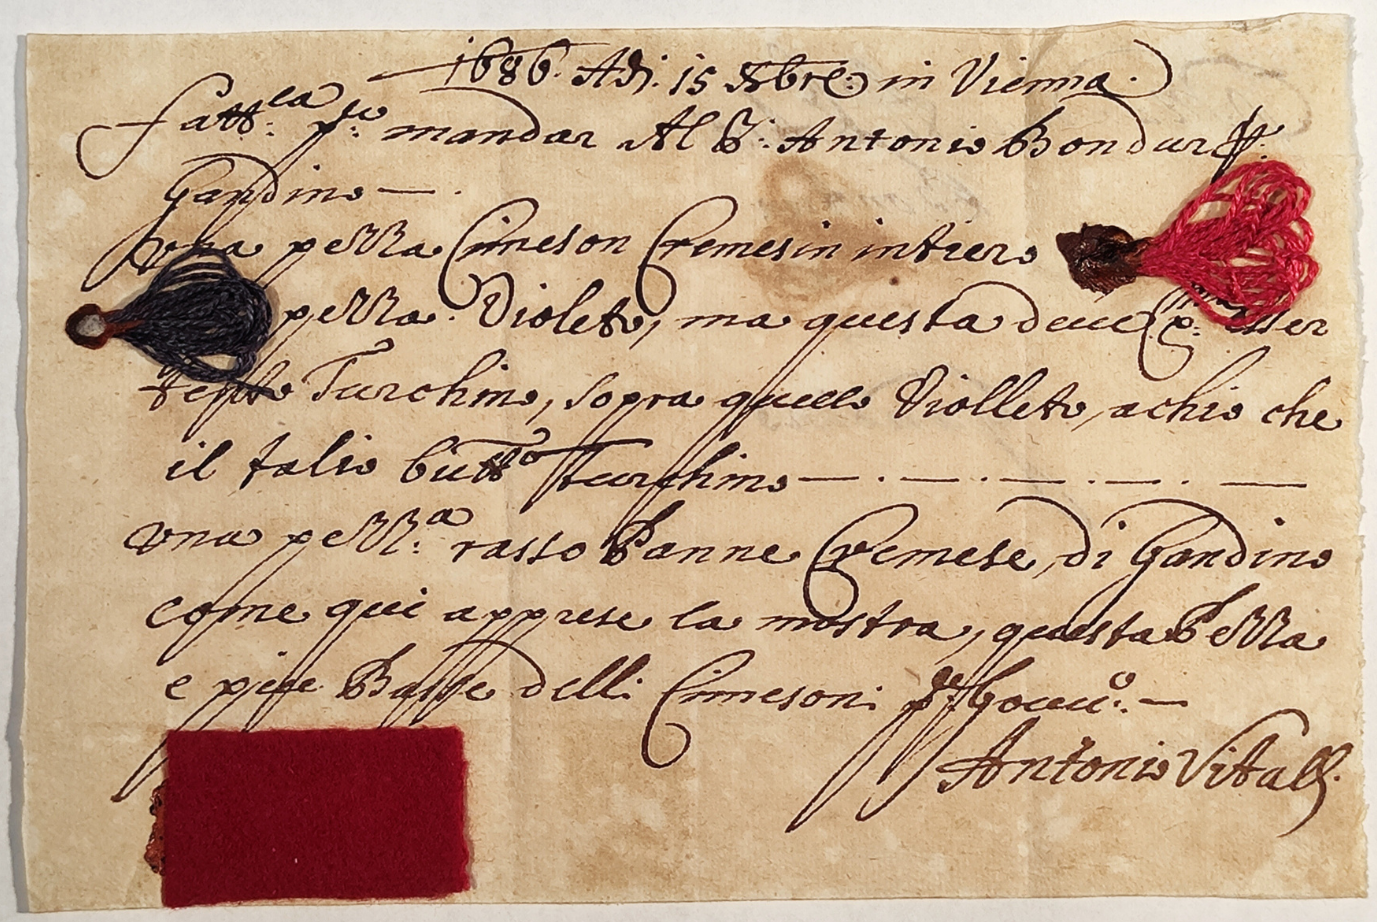 1686. Adi. 15 Xbre: in Vienna.
fatt:ra pr mandar Al S: Antonio Bondur
Gandino —.
Vna pezza Cimeson Cremesin intiero
pezza. Violeto, ma questa deue esser
Turchino, sopra quello Violleto, achio che
il talio butto turchino — . — . — . — . —
vna pezz:a rasso Panne Cremese, di Gandino
come qui apprese la mostra, questa Pezza
e piu Basse delli Cimesoni —
Antonio Vitali